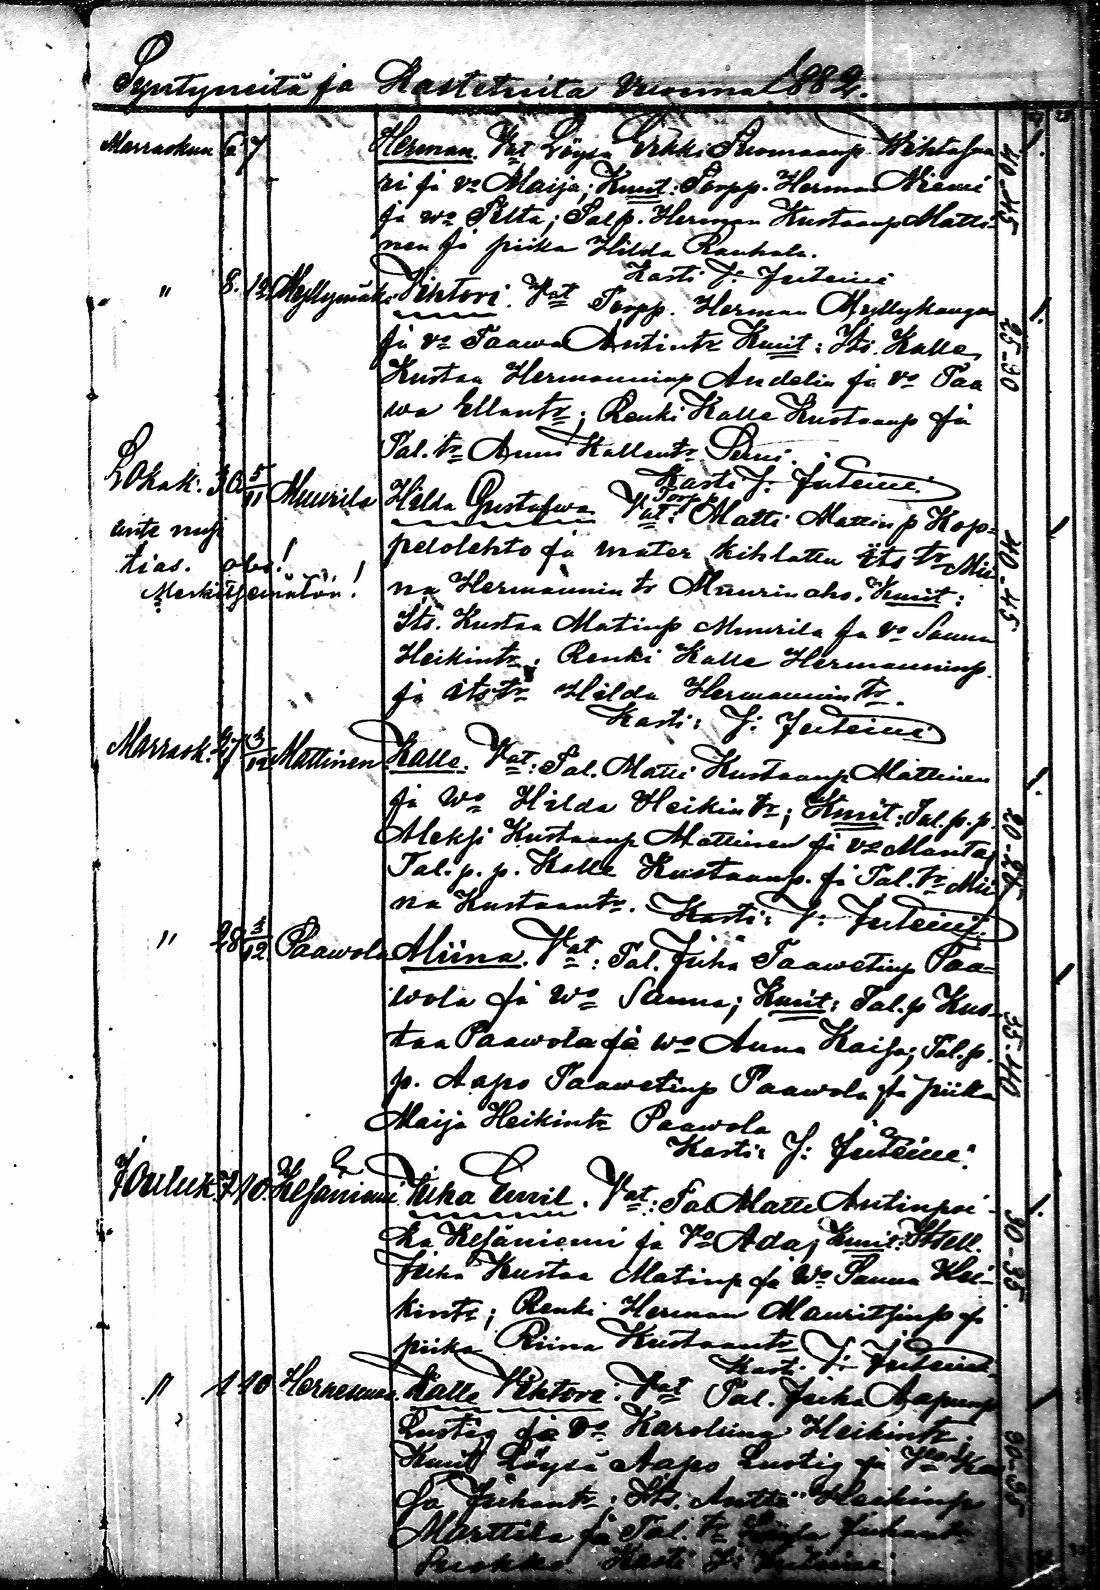 Syntyneitä ja Kastetuita Vuonna 1882.
Marraskuu 6 7 Herman. Vat Löysä Erkki Tuomaanp.
ri ja vo Maija; Kmit: Torpp. Herman Niemi
ja wo ; Talp. Herman Kustaanp Matti-
nen ja piika Hilda Rauhala.
Kasti J: Juteini
" 8. 12 Myllymäki Viktori. Vat Torpp. Herman Myllykangas
ja vo Taawa Antintr Kmit: Its. Kalle
Kustaa Hermanninp Andelin ja vo Taa
wa Ellantr; Renki Kalle Kustaanp ja
Tal. tr Anni Kallentr
Kasti J: Juteini.
Lokak. 30 5/11 Muurila Hilda Gustafwa Vat: Torpp. Matti Mattinp Kop-
ante nup
pelolehto ja mater kihlattu its tr Mii-
tias. obs!
na Hermannintr Kmit:
Merkitsemätön!
Its. Kustaa Matinp Muurila ja vo Sanna
Heikintr; Renki Kalle Hermanninp.
ja itstr Hilda Hermannintr.
Kasti: J: Juteini
Marrask. 27 3/12 Mattinen Kalle. Vat: Tal. Matti Kustaanp Mattinen
ja Wo Hilda Heikintr; Kmit: Tal.p.p.
Aleksi Kustaanp Mattinen ja vo Manta;
Tal. p. p. Kalle Kustaanp. ja Tal. tr Mii
na Kustaantr. Kasti: J: Juteini.
" 28 3/12 Paawola Miina. Vat: Tal. Juha Taawetinp Paa-
wola ja Wo Sanna; Kmit: Tal.p Kus-
taa Paawola ja wo Anna Kaisa; Tal.p.
p. Aapo Taawetinp Paawola ja piika
Maija Heikintr Paawola
Kasti: J: Juteini.
Jouluk. 7 10 Kesäniemi Juha Emil. Vat: Tal Matti Antinpoi
ka Kesäniemi ja Vo Ada; Kmit:
Juha Kustaa Matinp ja Wo Sanna Hei-
kintr; Renki Herman Mauritsinp ja
piika Riina Kustaantr
Kasti J: Juteini.
" 1 10 Kalle Viktori. Vat Tal. Juha Aapunp
Lustig ja Vo Karolina Heikintr;
Kmit Löysä Aapo Lustig ja Vo
ja Juhantr; Its. Antti Heikinp
Marttila ja Tal. tr Juhantr
Kasti J: Juteini
40-45
25-30
40-45
20-25
35-40
30-35.
30-35